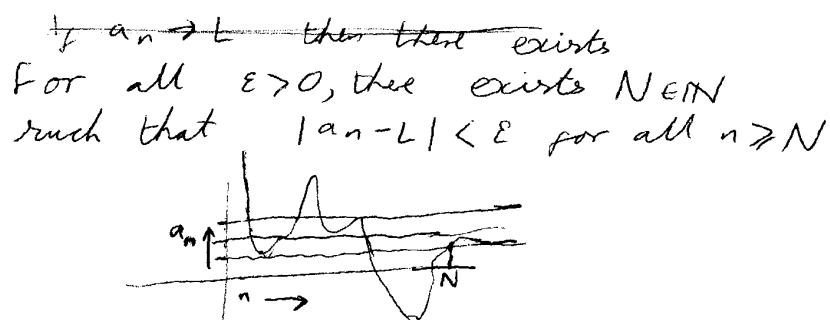 If aₙ → L then there exists
For all ε>0, thee exists N∈ℕ
such that |aₙ-L| < ε for all n ≥ N
aₙ
N
n →